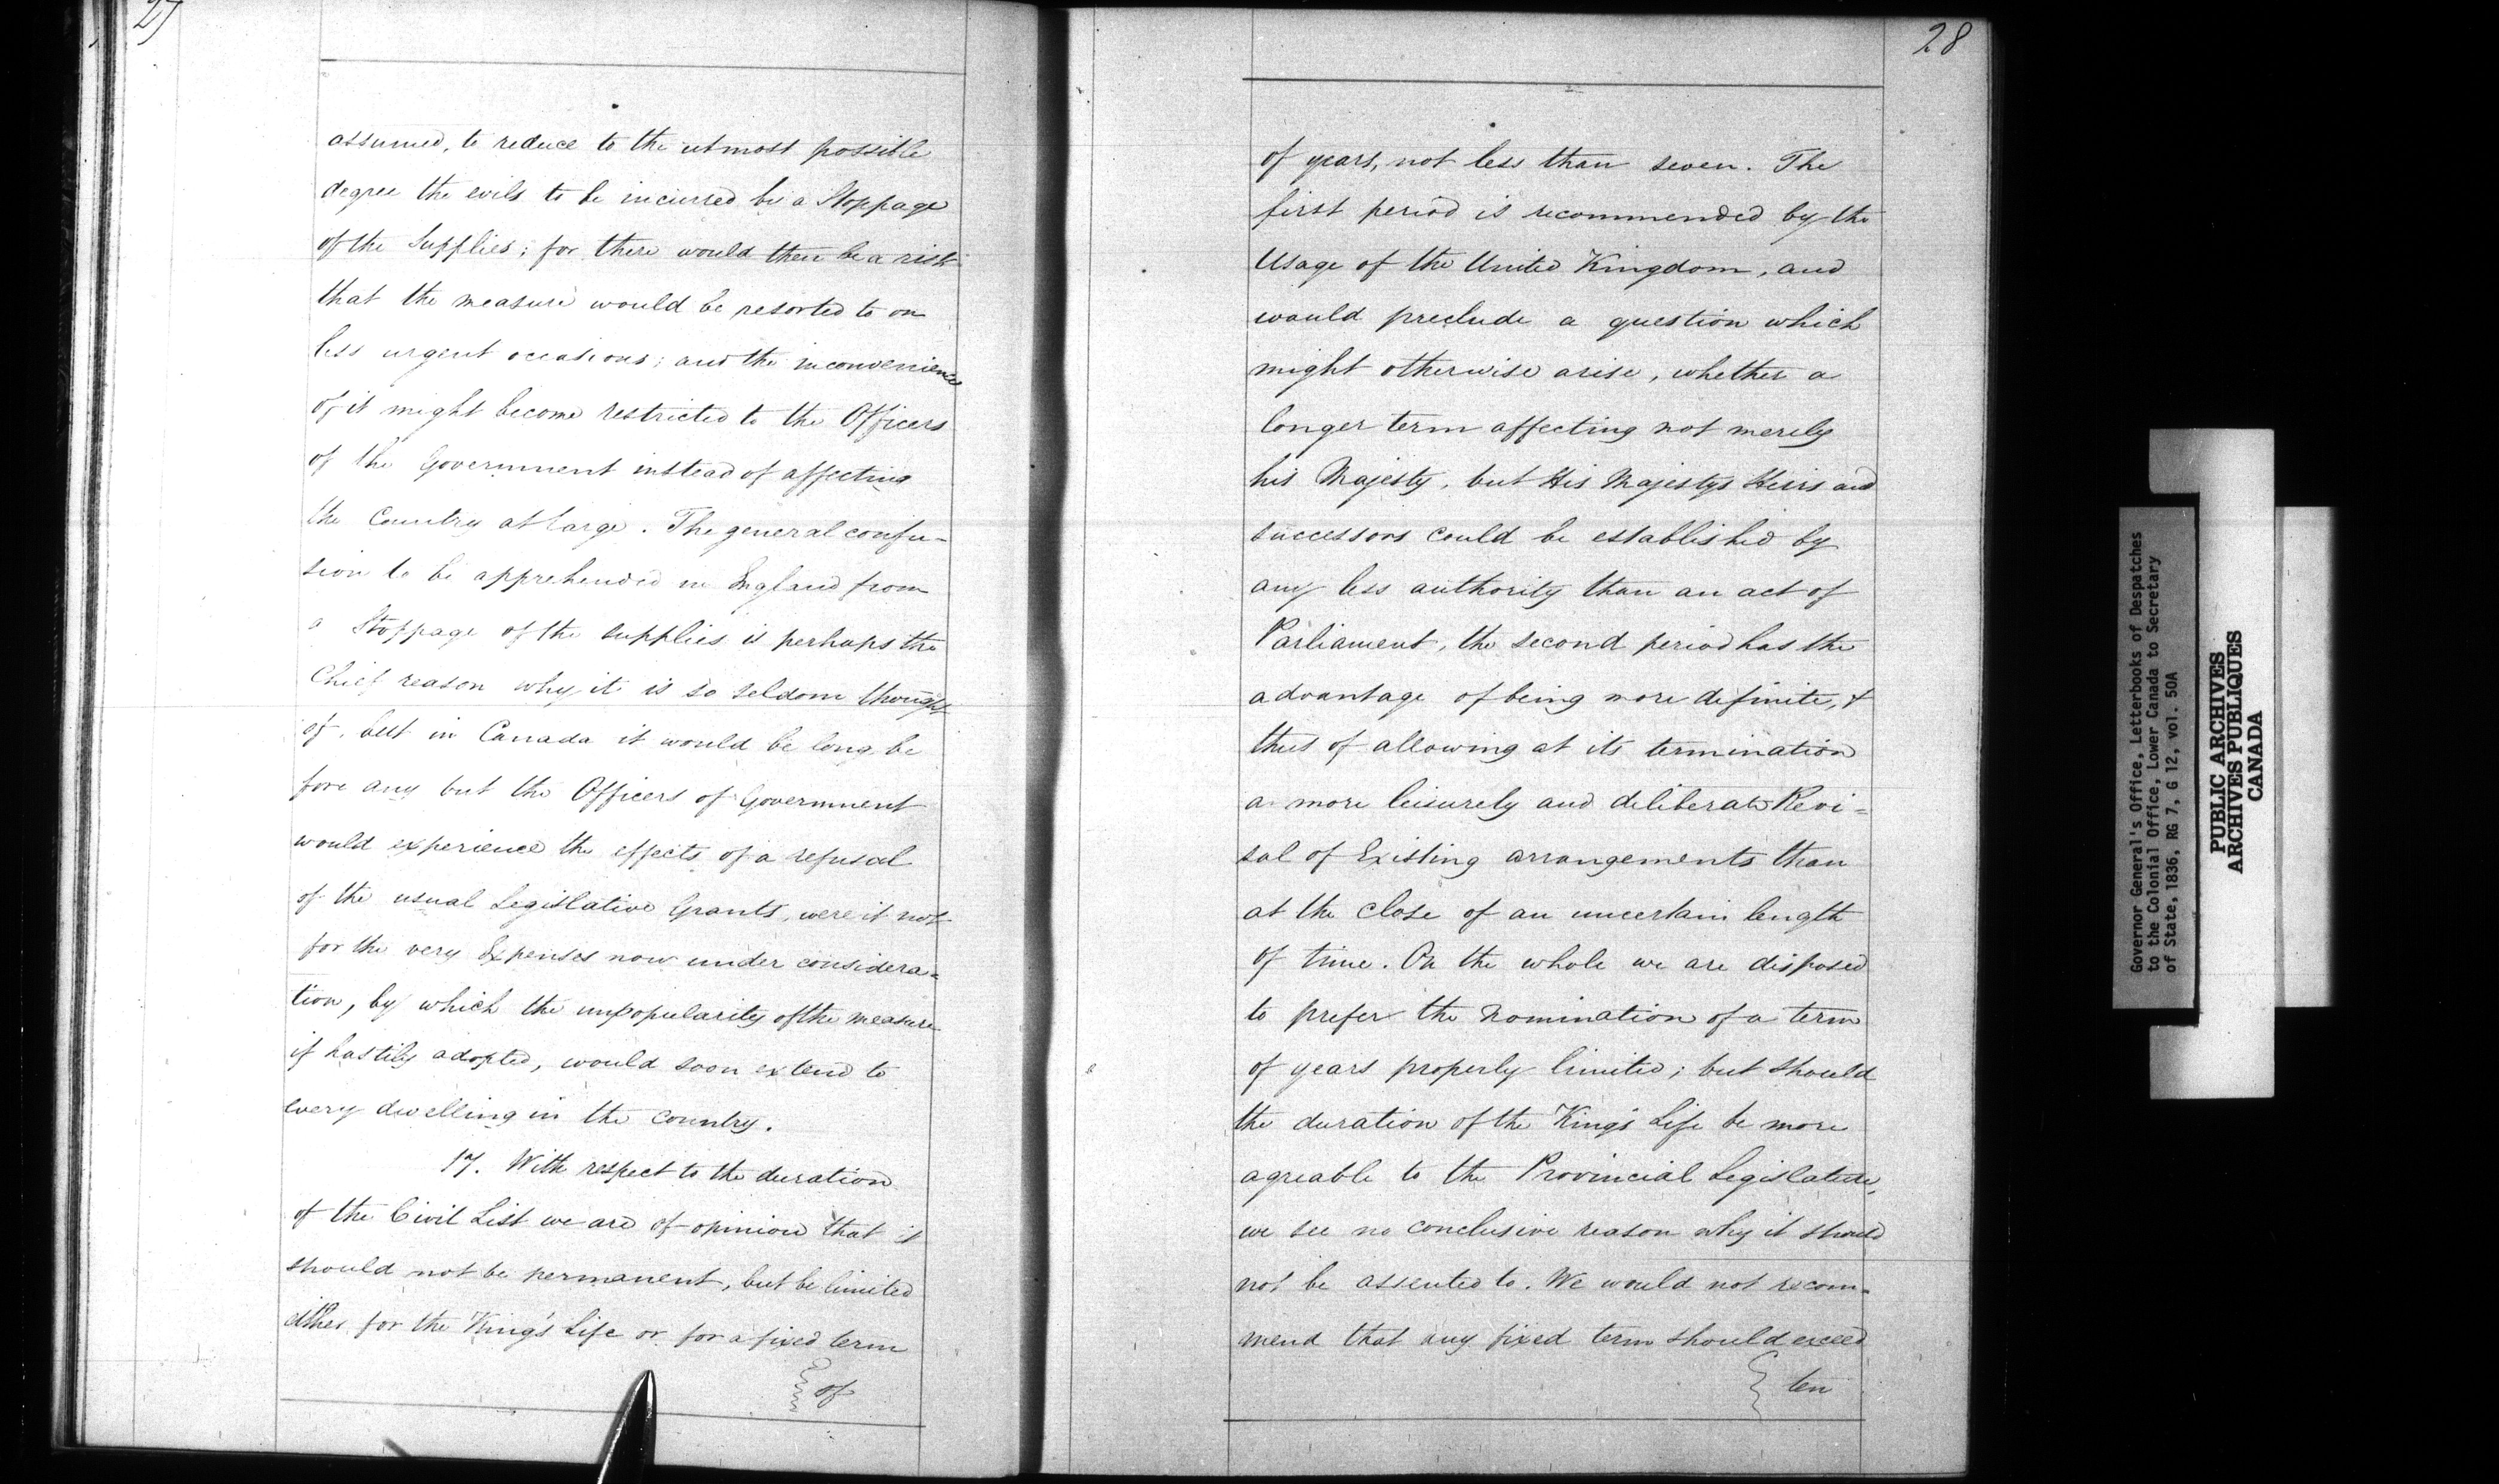 27
assumed, to reduce to the utmost possible
degree the evils to be incurred by a Stoppage
of the Supplies; for there would then be a risk
that the measure would be resorted to on
less urgent occasions; and the inconvenience
of it might become restricted to the Officers
of the Government instead of affecting
the Country at large. The general confu-
sion to be apprehended in England from
a Stoppage of the supplies is perhaps the
Chief reason why it is so seldom thought
of, but in Canada it would be long be
fore any but the Officers of Government
would experience the effects of a refusal
of the usual Legislative Grants, were it not
for the very Expenses now under considera=
tion, by which the unpopularity of the measure
if hastily adopted, would soon extend to
every dwelling in the country.
17. With respect to the duration
of the Civil List we are of opinion that it
should not be permanent, but be limited
either for the King's Life or for a fixed term
of
28
of years, not less than seven. The
first period is recommended by the
Usage of the United Kingdom, and
would preclude a question which
might otherwise arise, whether a
longer term affecting not merely
his Majesty, but His Majestys Heirs and
successors could be established by
any less authority than an act of
Parliament, the second period has the
advantage of being more definite, &
thus of allowing at its termination
a more leisurely and deliberate Revi=
sal of Existing arrangements than
at the close of an uncertain length
of time. On the whole we are disposed
to prefer the nomination of a term
of years properly limited; but should
the duration of the King's Life be more
agreable to the Provincial Legislature,
we see no conclusive reason why it should
not be assented to. We would not recom-
mend that any fixed term should exceed
ten
Governor General's Office, Letterbooks of Despatches
to the Colonial Office, Lower Canada to Secretary
of State, 1836, RG 7, G 12, vol. 50A
PUBLIC ARCHIVES
ARCHIVES PUBLIQUES
CANADA